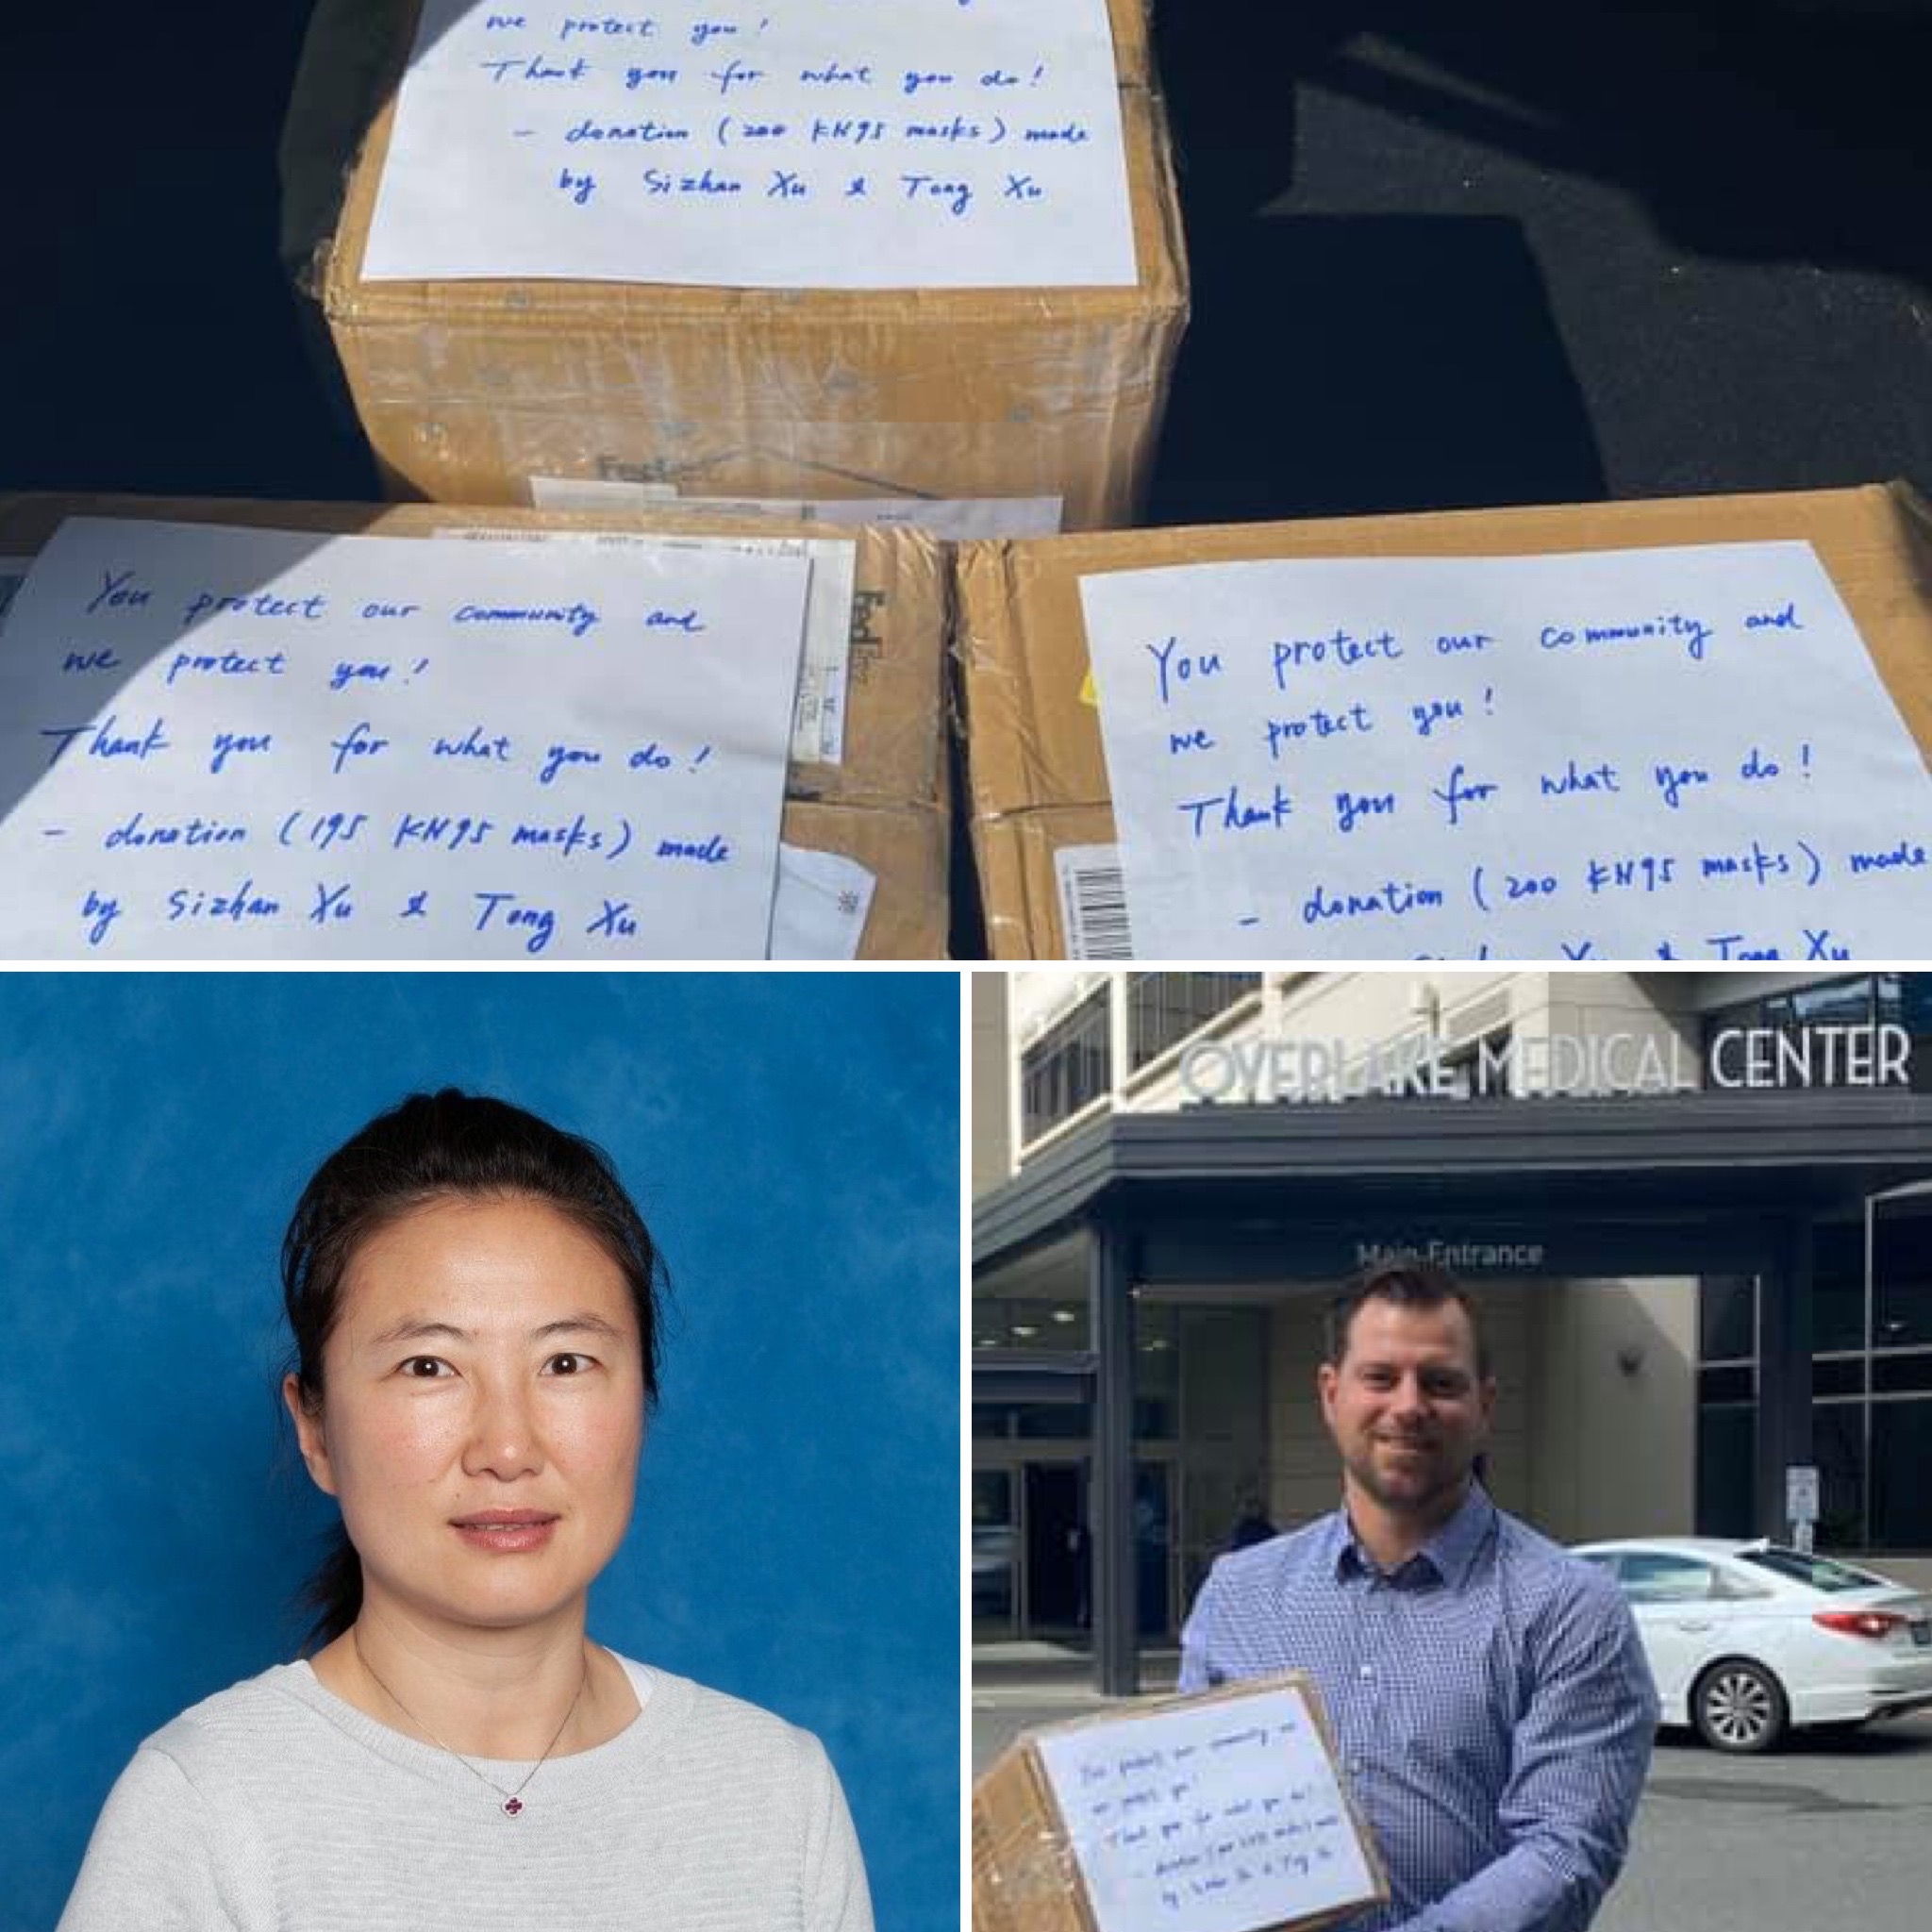 we protect you!
Thank you for what you do!
- donation (200 KN95 masks) made
by Sizhan Xu & Tong Xu
FedEx
You protect our community and
we protect you!
Thank you for what you do!
- donation (195 KN95 masks) made
by Sizhan Xu & Tong Xu
FedEx
You protect our community and
we protect you!
Thank you for what you do!
- donation (200 KN95 masks) made
& Tong Xu
OVERLAKE MEDICAL CENTER
Main Entrance
You protect our community and
we protect you!
Thank you for what you do!
- donation ( KN95 masks) made
by Sizhan Xu & Tong Xu